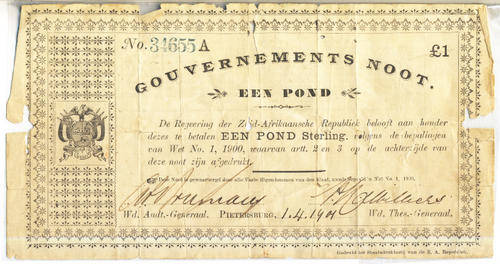 No. 34655 A
£1
GOUVERNEMENTS NOOT.
EEN POND
De Regeering der Zuid-Afrikaansche Republiek belooft aan houder
dezes te betalen EEN POND Sterling, volgens de bepalingen
van Wet No. 1, 1900, waarvan artt. 2 en 3 op de achterzijde van
deze noot zijn afgedrukt.
Deze Noot is gewaarborgd door alle Vaste Eigendommen van den Staat, Wet No. 1, 1900.
Wd. Audt.-Generaal. PIETERSBURG, 1.4.1901 Wd. Thes.-Generaal.
Gedrukt ter Staatsdrukkerij van de Z. A. Republiek.